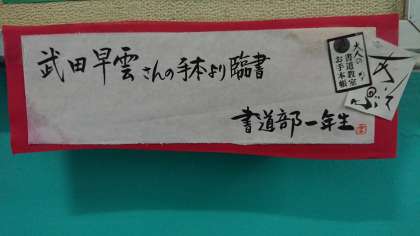 武田早雲さんの手本より臨書
書道部一年生
大人の
書道教室
お手本帳